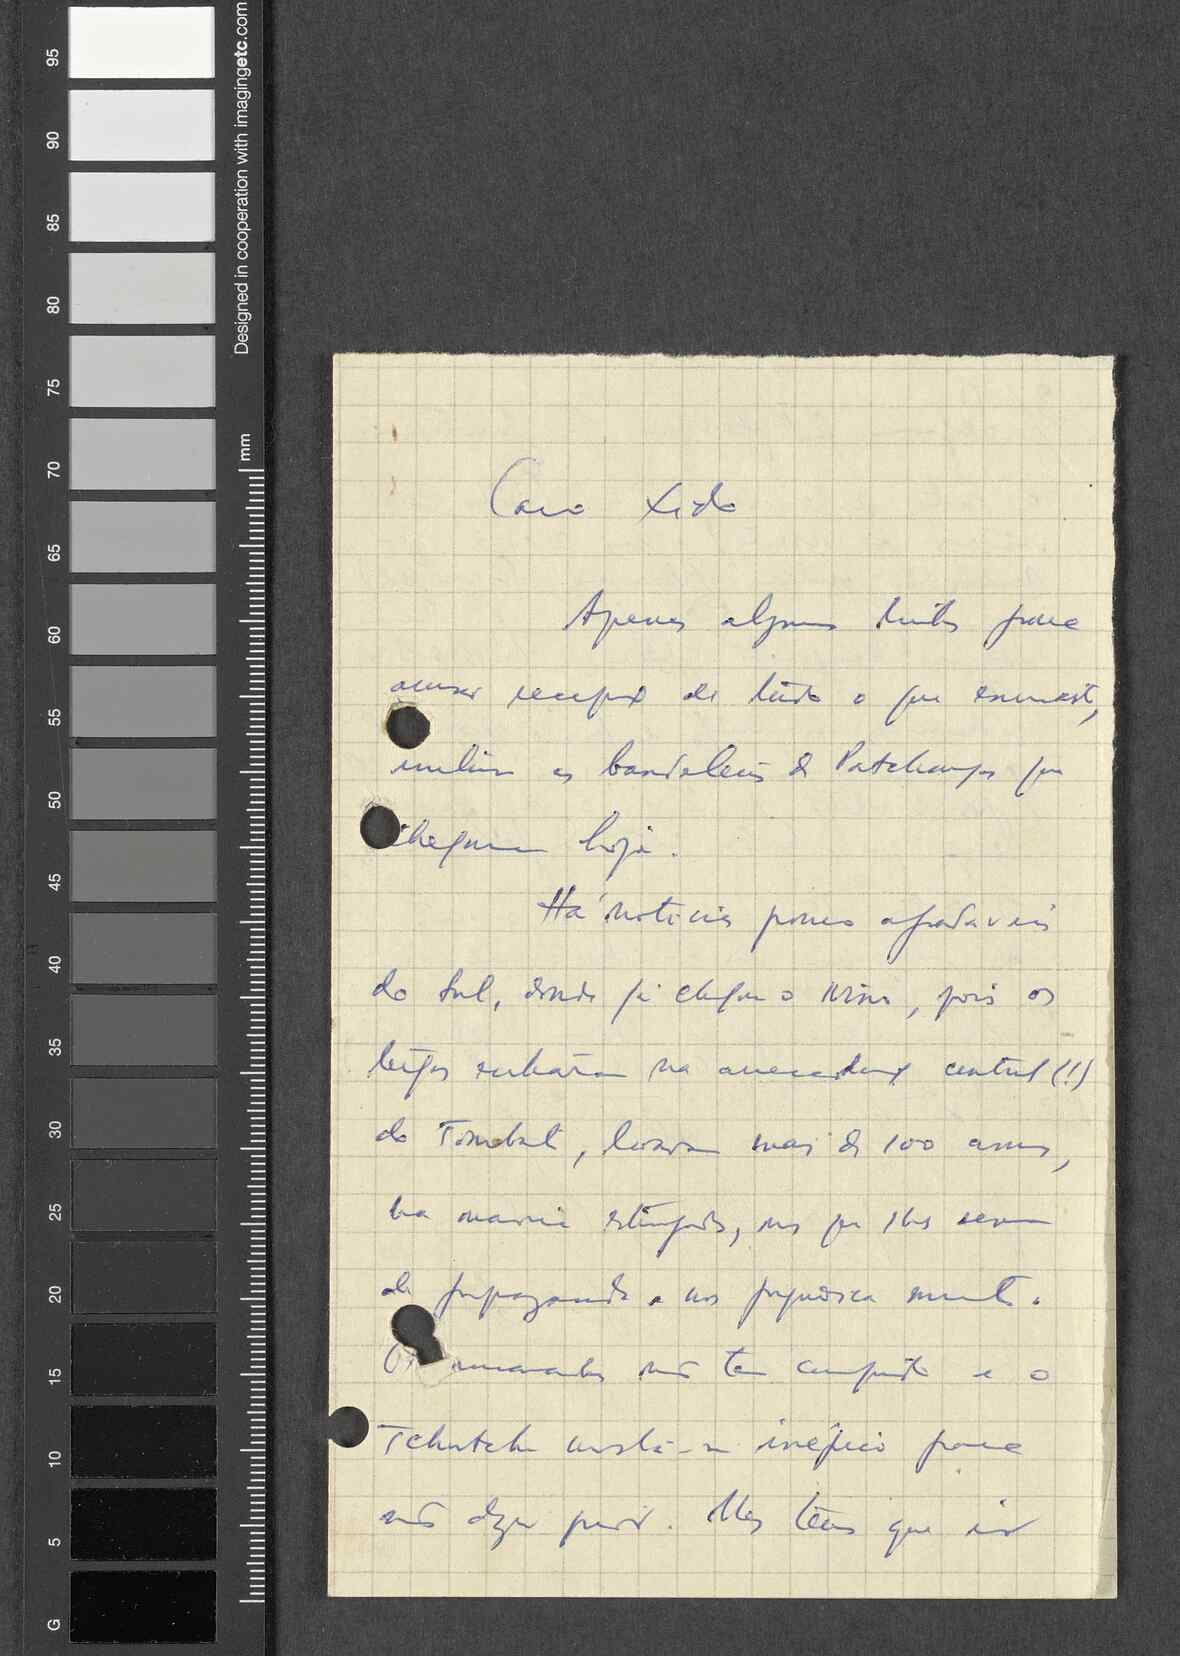 95
90
85
80
75
70
65
60
55
50
45
40
35
30
25
20
15
10
5
G
Designed in cooperation with imagingetc.com
mm
Caro Xido
Apenas algumas linhas para
acusar recepção de tudo o que enviaste,
inclusive as bandoleiras de Patchanga que
chegaram hoje.
Há noticias pouco agradaveis
do Sul, donde já chegou o Nino, pois os
tugas entraram na arrecadação central (!!)
do Tombali, levaram mais de 100 armas,
na maioria estragadas, mas que lhes servem
de propaganda e nos prejudica muito.
Os camaradas não têm cumprido e o
Tchutchu mostra-se inépcio para
não dizer peior. Mas temos que ir